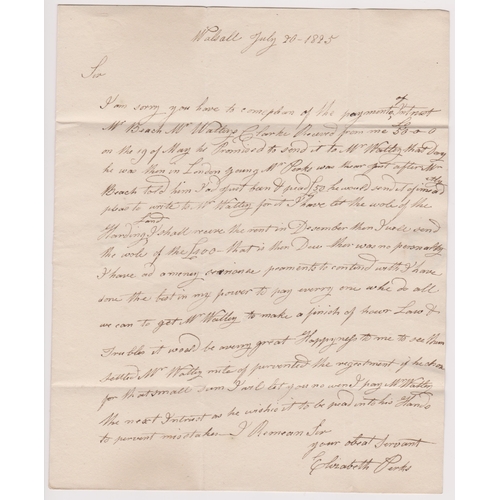 Walsall July 20 - 1825
Sir
I am sorry you have to complain of the payments of Intrest
Mr Beach Mr Watleys Clarke Receved from me 50-0-0
on the 19 of May he Promised to send it to Mr Watley that Day
he was then in London young Mr Perks was thear just after Mr
Beach told him I ad just ben & pead £50 he would send it of
pleas to write to Mr Watley for it I have let the wole of the
Harding Land I shall receve the rent in December then I well send
the wole of the £100 that is then Due ther was no personalty
I have ad a meney payments to contend with I have
done the best in my power to pay every one whe do all
we can to get Mr Watley to make a finish of hour Law &
Truble it would be a very great Happyness to me to see them
setled Mr Watley mite of pervented the
for that small sum I will let you no wen I pay Mr Watley
the next Intrest as he wishes it to be pead into his Hands
to prevent mistakes I Remean Sir
your obeat Servant
Elizabeth Perks